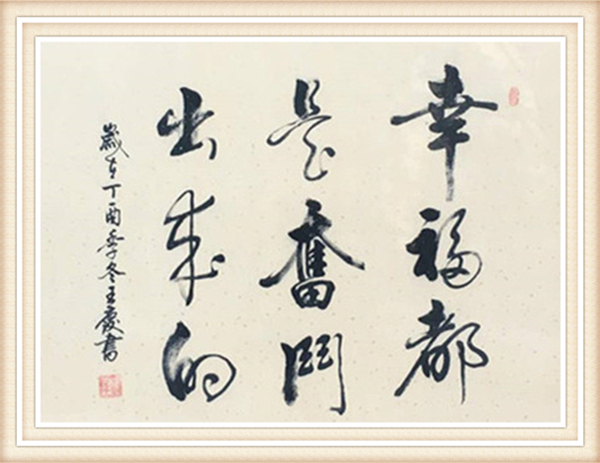 幸福都
是奮鬥
出来的
歲在丁酉季冬王慶書